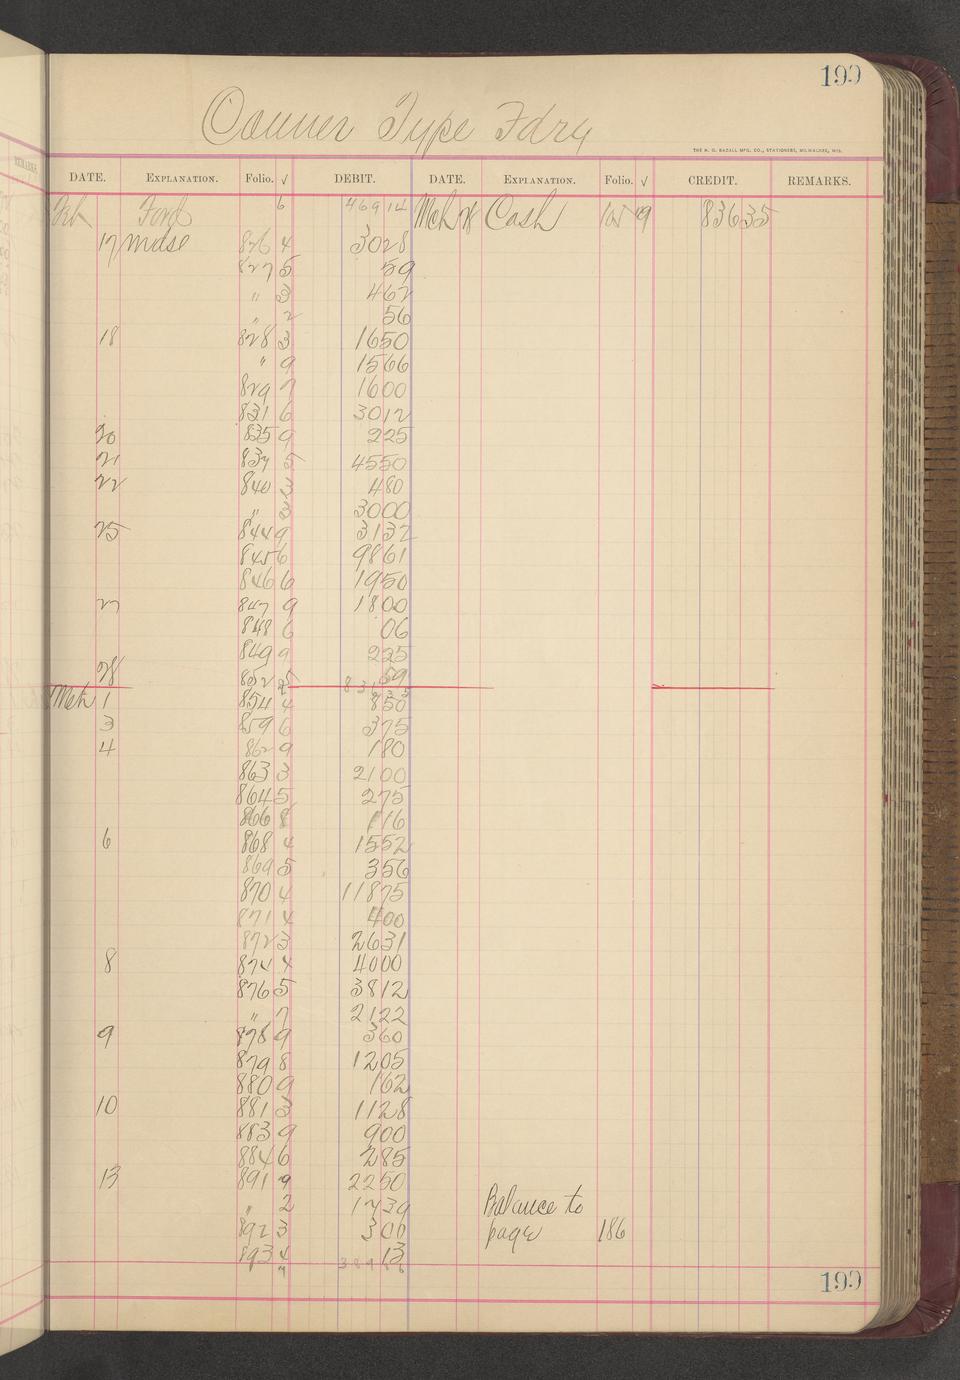 199
Conner Type Fdry
THE H. G. RAZALL MFG. CO., STATIONERS, MILWAUKEE, WIS.
DATE. EXPLANATION. Folio. √ DEBIT. DATE. EXPLANATION. Folio. √ CREDIT. REMARKS.
Feb Ford 6 46914 Mch 28 Cash 105 9 83635
17 mdse 826 4 3028
827 5 59
" 3 462
" 2 56
18 828 3 1650
" 9 1566
829 7 1600
831 6 3012
20 835 9 225
21 837 5 4550
22 840 3 480
" 3 3000
25 844 9 3132
845 6 9861
846 6 1950
27 847 9 1800
848 6 06
849 9 225
28 852 5 59
83635
Mch 1 854 4 850
3 859 6 375
4 862 9 180
863 3 2100
864 5 275
866 8 116
6 868 4 1552
869 5 356
870 4 11875
871 4 400
872 3 2631
8 874 4 4000
876 5 3812
" 7 2122
9 878 9 360
879 8 1205
880 9 162
10 881 3 1128
883 9 900
884 6 285
13 891 9 2250
" 2 1739 Balance to
892 3 300 page 186
893 4 13
7
199